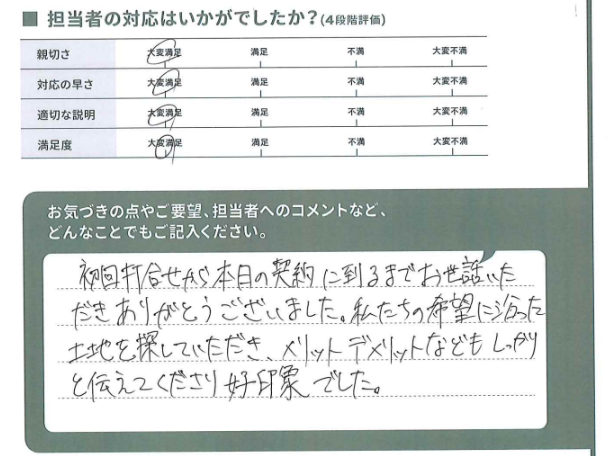 ■ 担当者の対応はいかがでしたか？(4段階評価)
親切さ 大変満足 満足 不満 大変不満
対応の早さ 大変満足 満足 不満 大変不満
適切な説明 大変満足 満足 不満 大変不満
満足度 大変満足 満足 不満 大変不満
お気づきの点やご要望、担当者へのコメントなど、
どんなことでもご記入ください。
初回打合せから本日の契約に到るまでお世話いた
だきありがとうございました。私たちの希望に沿った
土地を探していただき、メリットデメリットなどもしっかり
と伝えてくださり好印象でした。